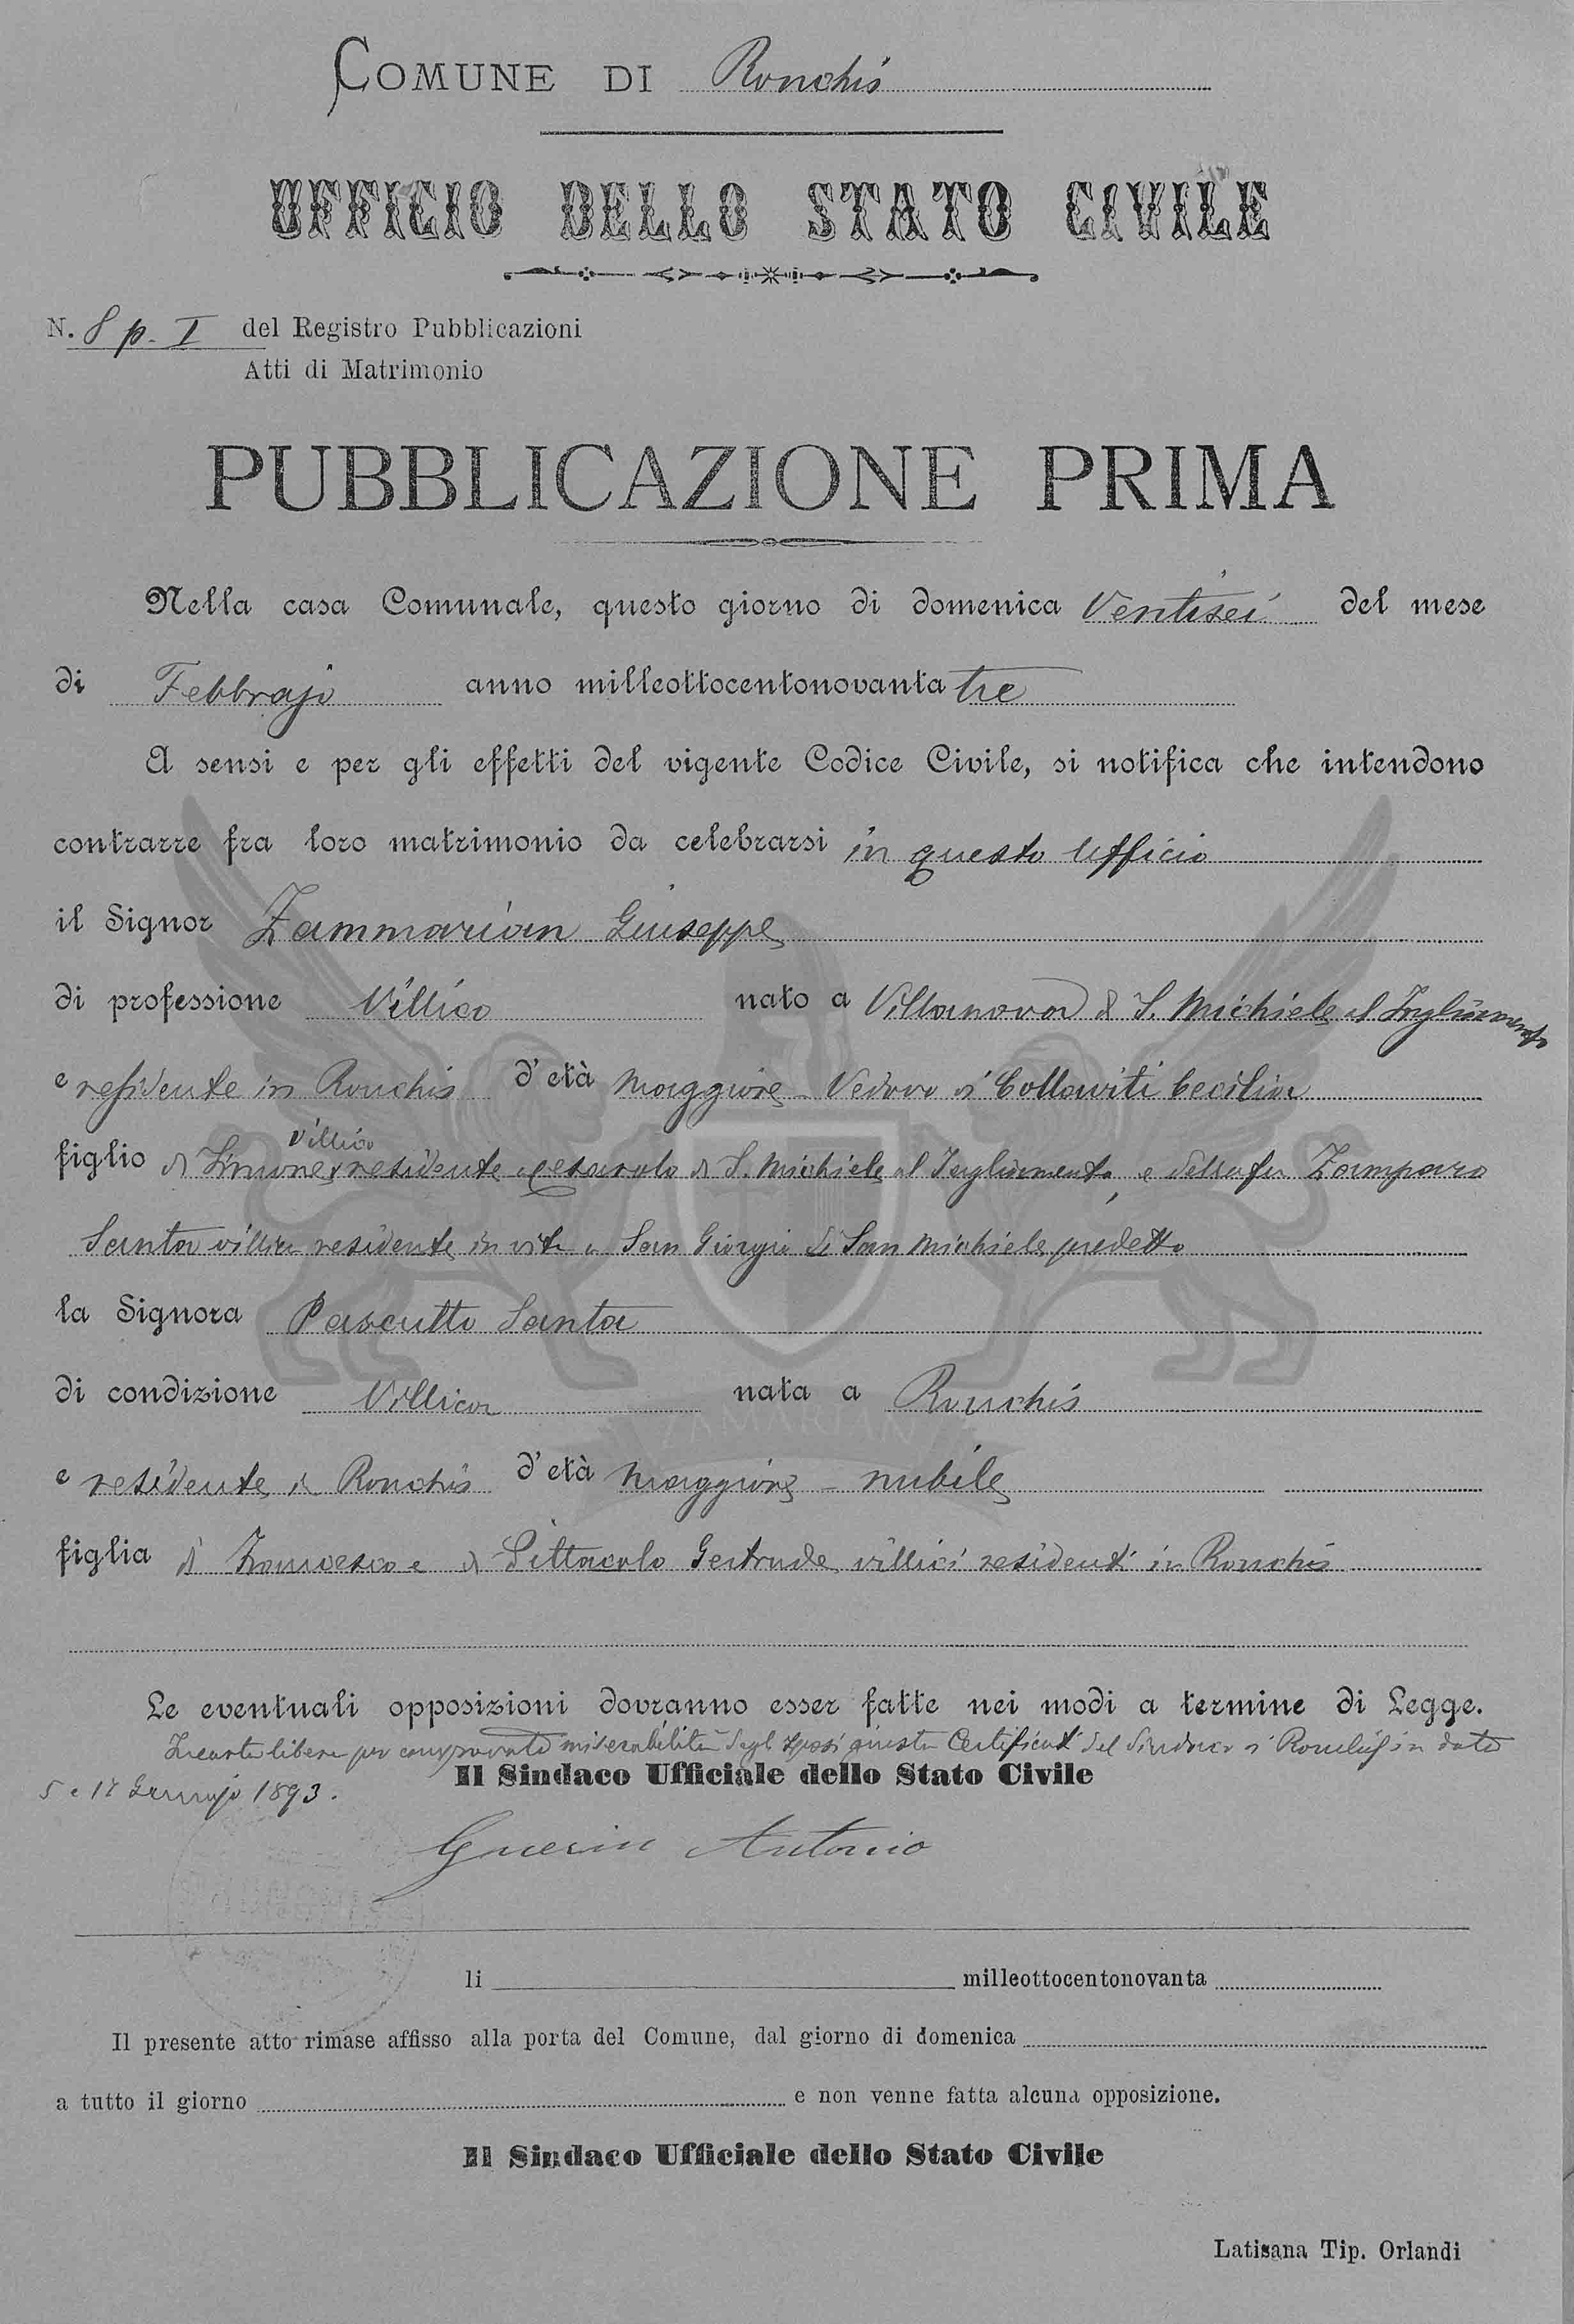 COMUNE DI Ronchis
UFFICIO DELLO STATO CIVILE
N. 8 p. I del Registro Pubblicazioni
Atti di Matrimonio
PUBBLICAZIONE PRIMA
Nella casa Comunale, questo giorno di domenica Ventisei del mese
di Febbrajo anno milleottocentonovanta tre
A sensi e per gli effetti del vigente Codice Civile, si notifica che intendono
contrarre fra loro matrimonio da celebrarsi in questo Ufficio
il Signor Zammarian Giuseppe
di professione Villico nato a Villanova di S. Michiele al Tagliamento
e residente in Ronchis d'età maggiore - Vedovo di Collaviti Cecilia
Villico
figlio di Simone residente a Cesarolo di S. Michiele al Tagliamento, e della fu Zamparo
Santa villica residente in vita a San Giorgio di San Michiele predetto
la Signora Pascutto Santa
di condizione Villica nata a Ronchis
e residente in Ronchis d'età maggiore - nubile
figlia di Francesco e di Pittacolo Gertrude villici residenti in Ronchis
Le eventuali opposizioni dovranno esser fatte nei modi a termine di Legge.
In carta libera per comprovata miserabilità degli sposi giusta Certificati del Sindaco di Ronchis in data
Il Sindaco Ufficiale dello Stato Civile
5 e 12 Gennajo 1893.
Guerin Antonio
ZAMARIAN
li milleottocentonovanta
Il presente atto rimase affisso alla porta del Comune, dal giorno di domenica
a tutto il giorno e non venne fatta alcuna opposizione.
Il Sindaco Ufficiale dello Stato Civile
Latisana Tip. Orlandi